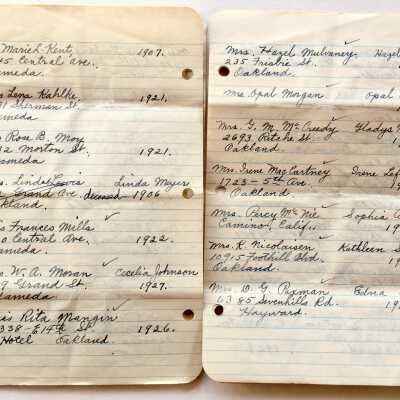 Marieh Kent, 1907.
45 Central Ave.
Alameda.
Lena Kahlke, 1921.
Sherman St.
Alameda.
Rose B. Moy
12 Morton St. 1921.
Alameda
Linda Lewis Linda Meyer
Grand Ave. deceased 1906
Oakland.
Frances Mills
Central Ave. 1922.
Alameda.
W. A. Moran Cecelia Johnson
9 Grand St. 1927.
Alameda
Rita Mangin
338 - E 14th St. 1926.
Hotel Oakland.
Mrs. Hazel Mulvaney Hazel
235 Frisbie St.
Oakland
Mrs Opal Morgan Opal
Mrs. G. M. McCreedy Gladys
2693 Ritchie St
Oakland.
Mrs. Irene MacCartney Irene Lef
1723 - 5th Ave.
Oakland
Mrs. Percy McNie Sophia
Camino, Calif.
Mrs. K. Nicolaisen Kathleen S
10915 Foothill Blvd.
Oakland.
Mrs. D. G. Paxman Edna
6385 Sevenhills Rd.
Hayward.